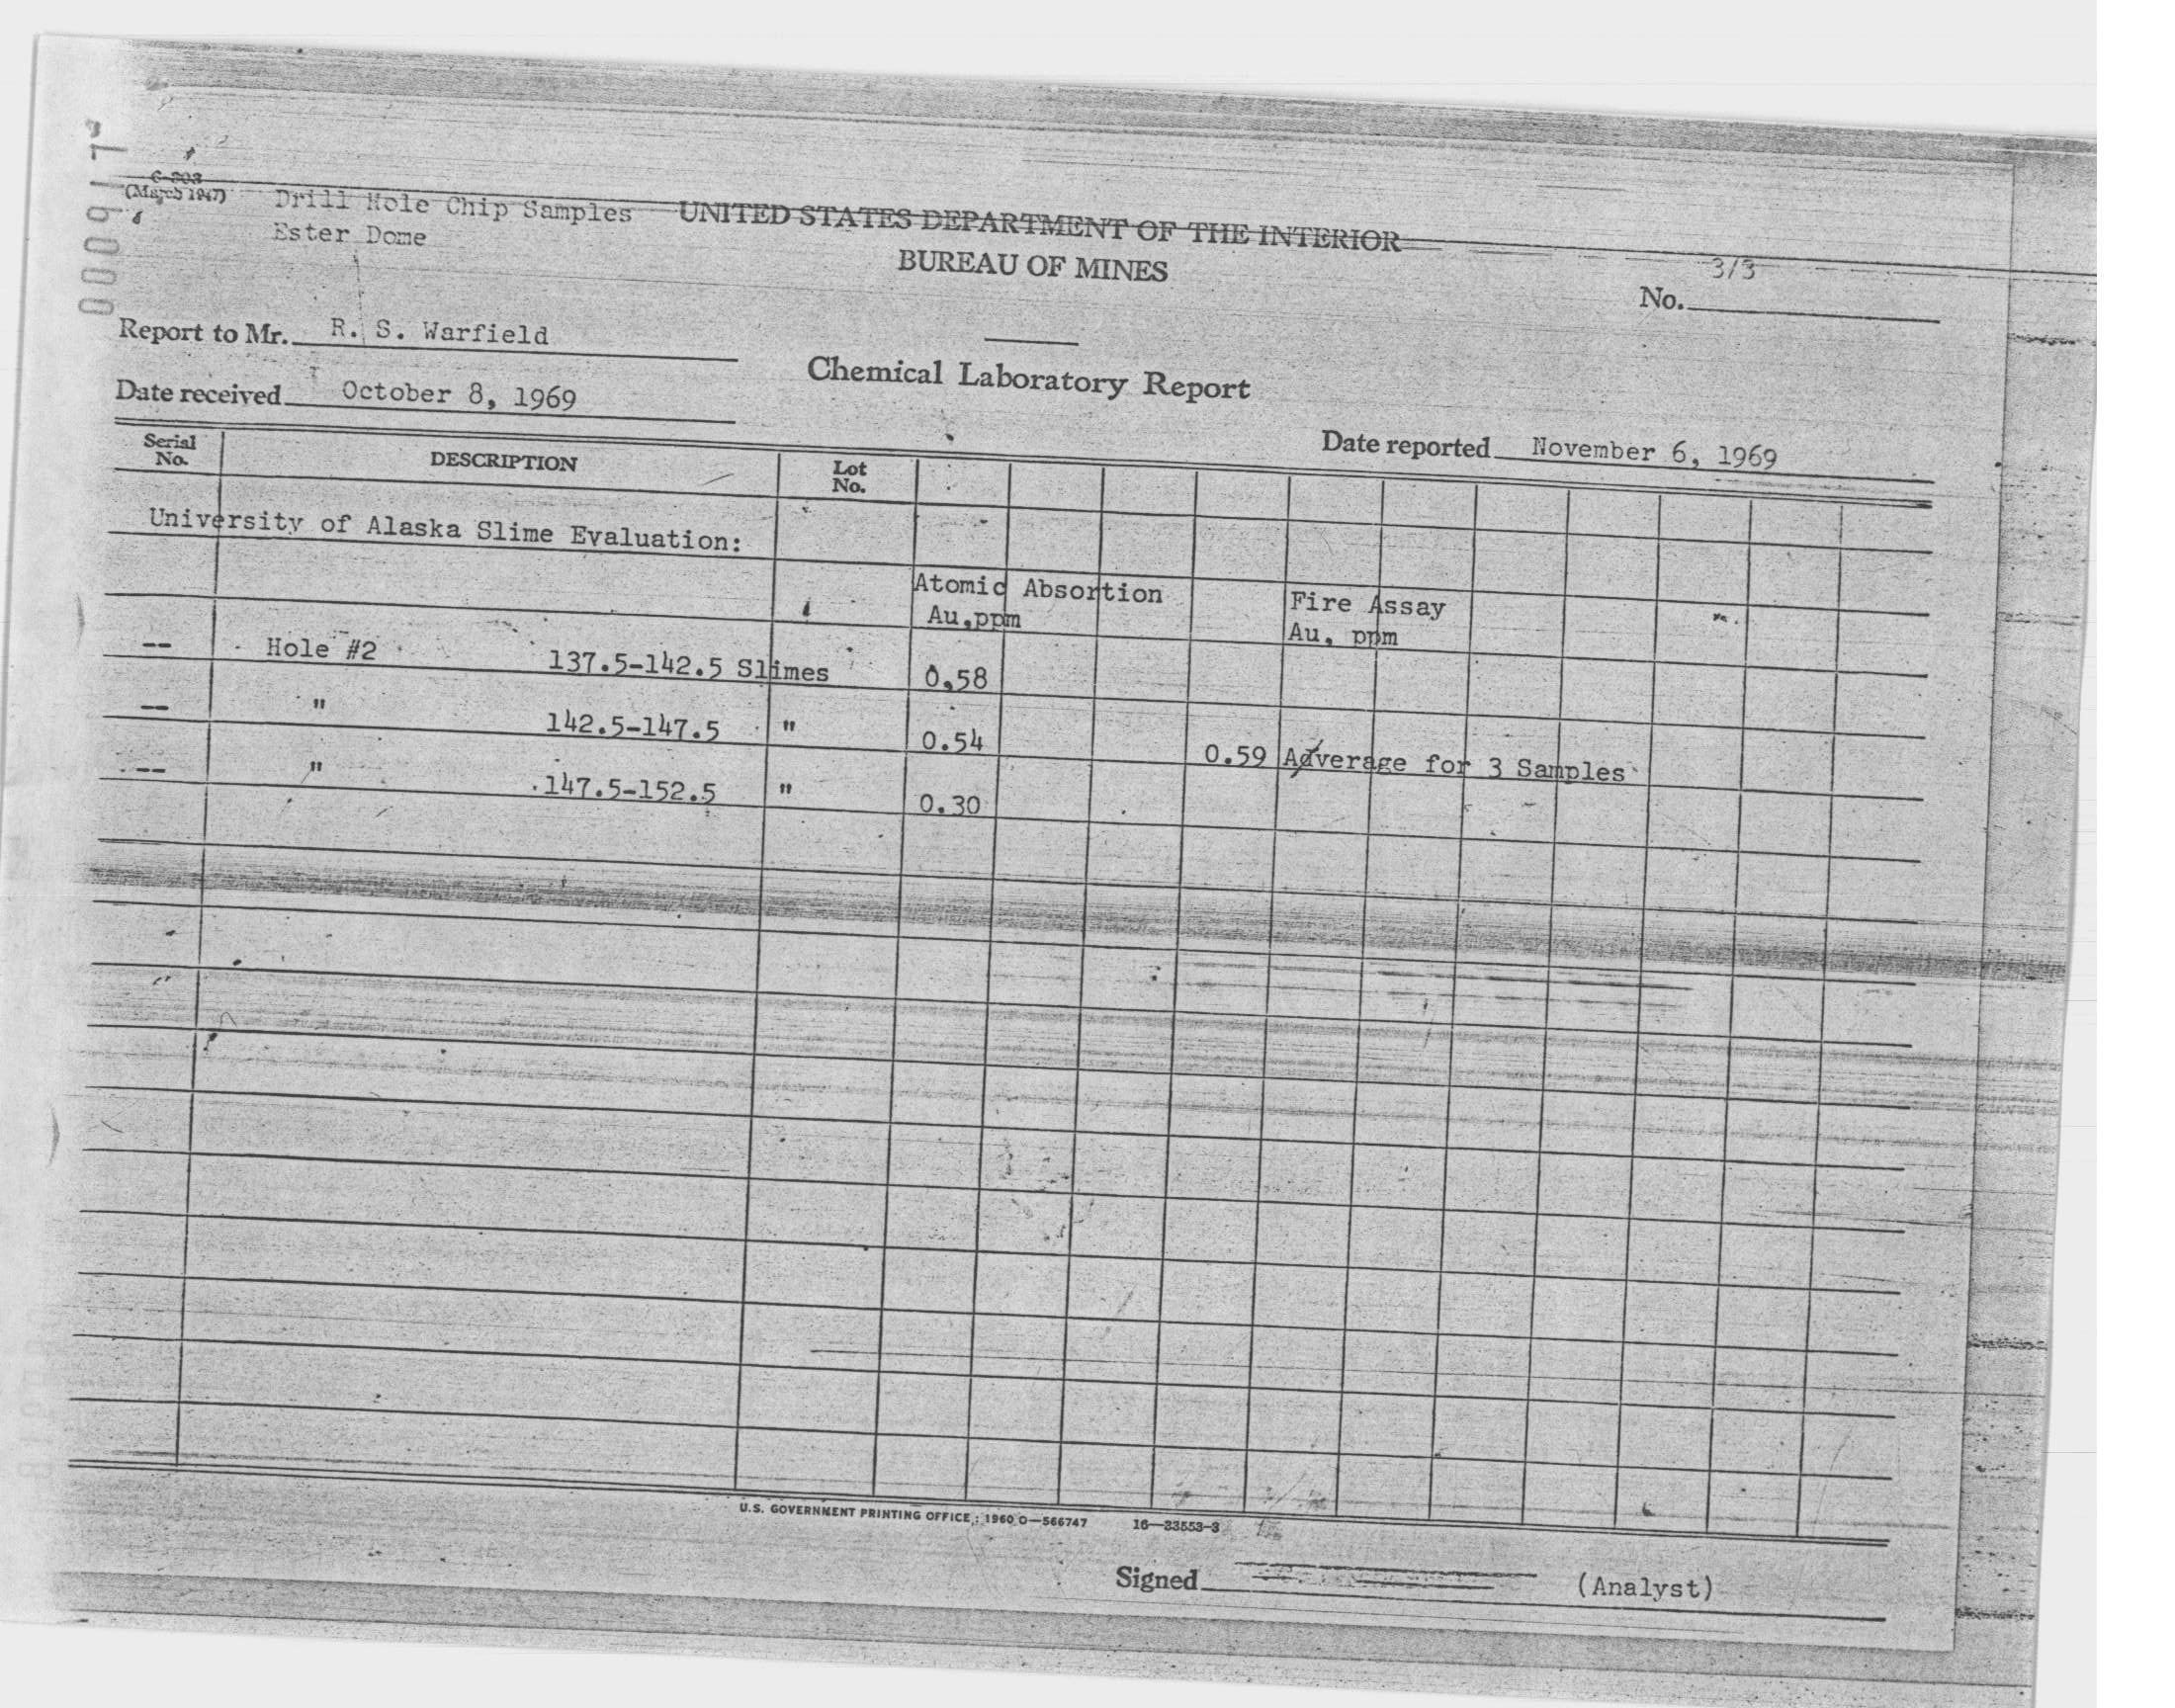 000917
6-303
(March 1947)
Drill Hole Chip Samples
Ester Dome
UNITED STATES DEPARTMENT OF THE INTERIOR
BUREAU OF MINES
3/3
No.
Report to Mr. R. S. Warfield
Chemical Laboratory Report
Date received October 8, 1969
Date reported November 6, 1969
Serial No. DESCRIPTION Lot No.
University of Alaska Slime Evaluation:
Atomic Absortion Fire Assay
Au,ppm Au, ppm
-- Hole #2 137.5-142.5 Slimes 0.58
-- " 142.5-147.5 " 0.54 0.59 Adverage for 3 Samples
-- " 147.5-152.5 " 0.30
U.S. GOVERNMENT PRINTING OFFICE : 1960 O—566747 16—23553-3
Signed (Analyst)